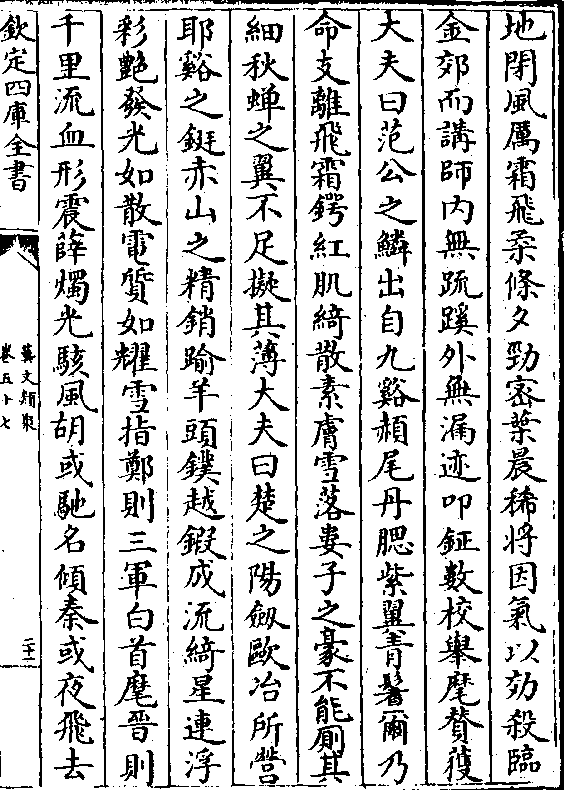 地閉風厲霜飛柔條夕勁密葉晨稀將因氣以効殺臨
金郊而講師内無疏蹊外無漏迹叩鉦數校舉麾賛獲
大夫曰范公之鱗出自九谿赬尾丹腮紫翼青鬐爾乃
命支離飛霜鍔紅肌綺散素膚雪落婁子之豪不能厠其
細秋蟬之翼不足擬其薄大夫曰楚之陽劔歐冶所營
耶谿之鋌赤山之精銷踰羊頭鏷越鍜成流綺星連浮
彩艶發光如散電質如耀雪指鄭則三軍白首麾晉則
千里流血形震薛燭光駭風胡或馳名傾秦或夜飛去
欽定四庫全書
藝文類聚
卷五十七
二十一